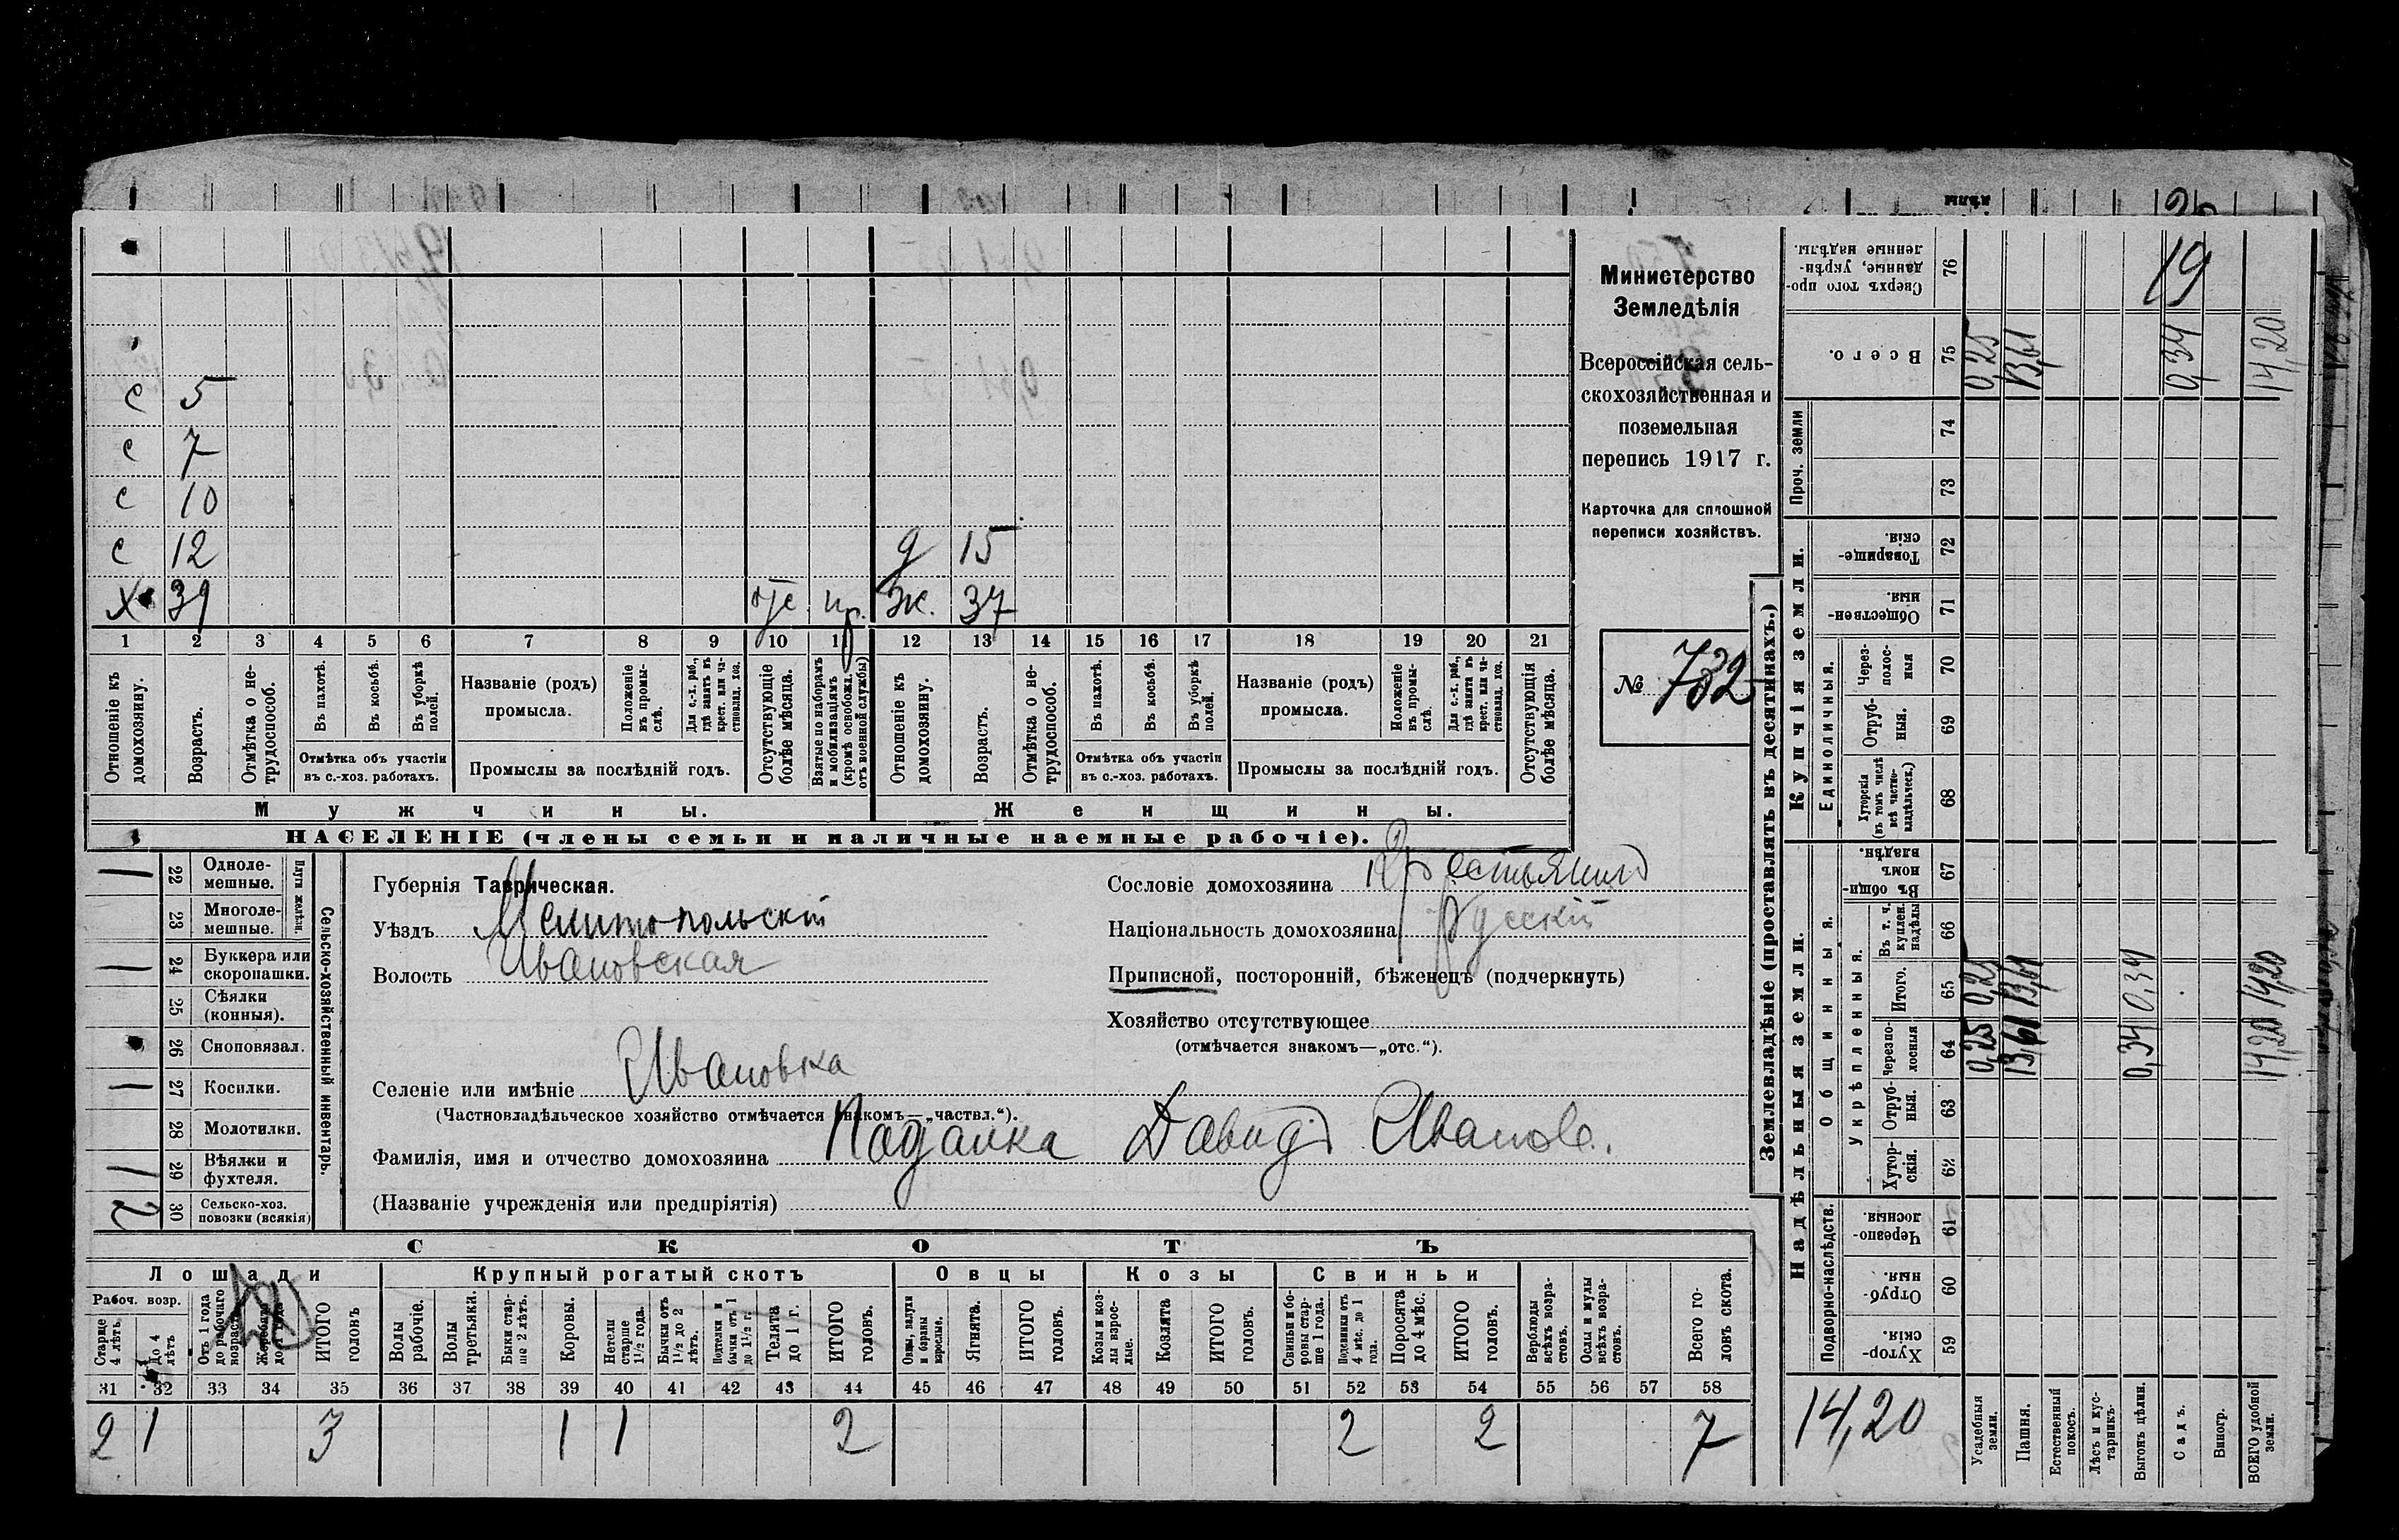 с 5
с 7
с 10
с 12 д 15
х 39 отс пр. Ж. 37
1 2 3 4 5 6 7 8 9 10 11 12 13 14 15 16 17 18 19 20 21
Отношеніе къ домохозяину.
Возрастъ.
Отмѣтка о не-трудоспособ.
Въ пахотѣ.
Въ косьбѣ.
Въ уборкѣ полей.
Отмѣтка объ участіи
въ с.-хоз. работахъ.
Названіе (родъ)
промысла.
Положеніе въ промы-слѣ.
Для с.-х. раб., гдѣ занятъ въ крест. или ча-стновлад. хоз.
Промыслы за послѣдній годъ.
Отсутствующіе болѣе мѣсяца.
Взятые по наборамъ и мобилизаціямъ (кромѣ освобожд. отъ военной службы)
Отношеніе къ домохозяину.
Возрастъ.
Отмѣтка о не-трудоспособ.
Въ пахотѣ.
Въ косьбѣ.
Въ уборкѣ полей.
Отмѣтка объ участіи
въ с.-хоз. работахъ.
Названіе (родъ)
промысла.
Положеніе въ промы-слѣ.
Для с.-х. раб., гдѣ занята въ крест. или ча-стновлад. хоз.
Промыслы за послѣдній годъ.
Отсутствующія болѣе мѣсяца.
Мужчины.
Женщины.
НАСЕЛЕНІЕ (члены семьи и наличные наемные рабочіе).
Министерство
Земледѣлія
Всероссійская сель-
скохозяйственная и
поземельная
перепись 1917 г.
Карточка для сплошной
переписи хозяйствъ.
№ 732
Сельско-хозяйственный инвентарь.
Плуги желѣзн.
1 22 Одноле-мешные.
23 Многоле-мешные.
1 24 Буккера или скоропашки.
25 Сѣялки (конныя).
26 Сноповязал.
1 27 Косилки.
28 Молотилки.
1 29 Вѣялки и фухтеля.
2 30 Сельско-хоз. повозки (всякія)
Губернія Таврическая.
Уѣздъ Мелитопольскій
Волость Ивановская
Селеніе или имѣніе Ивановка
(Частновладѣльческое хозяйство отмѣчается знакомъ—„частвл.“).
Фамилія, имя и отчество домохозяина Падалка Давидъ Иванов.
(Названіе учрежденія или предпріятія)
Сословіе домохозяина Крестьянинъ
Національность домохозяина Русскій
Приписной, посторонній, бѣженецъ (подчеркнуть)
Хозяйство отсутствующее
(отмѣчается знакомъ—„отс.“).
СКОТЪ
Лошади
Рабоч. возр.
Старше 4 лѣтъ.
До 4 лѣтъ
Отъ 1 года до рабочаго возраста
Жеребята до 1 года
ИТОГО головъ
Крупный рогатый скотъ
Волы рабочіе.
Волы третьяки.
Быки стар-ше 2 лѣтъ.
Коровы.
Нетели старше 1½ года.
Бычки отъ 1½ до 2 лѣтъ.
Подтелки и бычки отъ 1 до 1½ г.
Телята до 1 г.
ИТОГО головъ.
Овцы
Овцы, валухи и бараны взрослые.
Ягнята.
ИТОГО головъ.
Козы
Козы и коз-лы взрос-лые.
Козлята
ИТОГО головъ.
Свиньи
Свиньи и бо-ровы стар-ше 1 года.
Подсвинки отъ 4 мѣс. до 1 года.
Поросята до 4 мѣс.
ИТОГО головъ.
Верблюды всѣхъ возра-стовъ.
Ослы и мулы всѣхъ возра-стовъ.
Всего го-ловъ скота.
31 32 33 34 35 36 37 38 39 40 41 42 43 44 45 46 47 48 49 50 51 52 53 54 55 56 57 58
2 1 3 1 1 2 2 2 7
Землевладѣніе (проставлять въ десятинахъ.)
Надѣльныя земли.
Купчія земли.
Проч. земли
Подворно-наслѣдств.
Общинныя.
Укрѣпленныя.
Единоличныя.
Сверхъ того про-данные, укрѣп-ленные надѣлы. 76 19
Всего. 75 0,25 13,61 0,34 14,20
74
73
Товарище-скія. 72
Обществен-ныя. 71
Через-полос-ныя 70
Отруб-ныя. 69
Хуторскія (въ томъ числѣ всѣ частно-владѣльческ.) 68
Въ общи-номъ владѣн. 67
Въ т. ч. куплен. надѣлы 66
Итого. 65 0,25 13,61 0,34 14,20
Черезпо-лосныя 64 0,25 13,61 0,34 14,20
Отруб-ныя. 63
Хутор-скія. 62
Черезпо-лосныя. 61
Отруб-ныя. 60
Хутор-скія. 59
14,20
Усадебныя земли.
Пашня.
Естественный покосъ.
Лѣсъ и кус-тарникъ.
Выгонъ цѣлин.
Садъ.
Виногр.
ВСЕГО удобной земли.